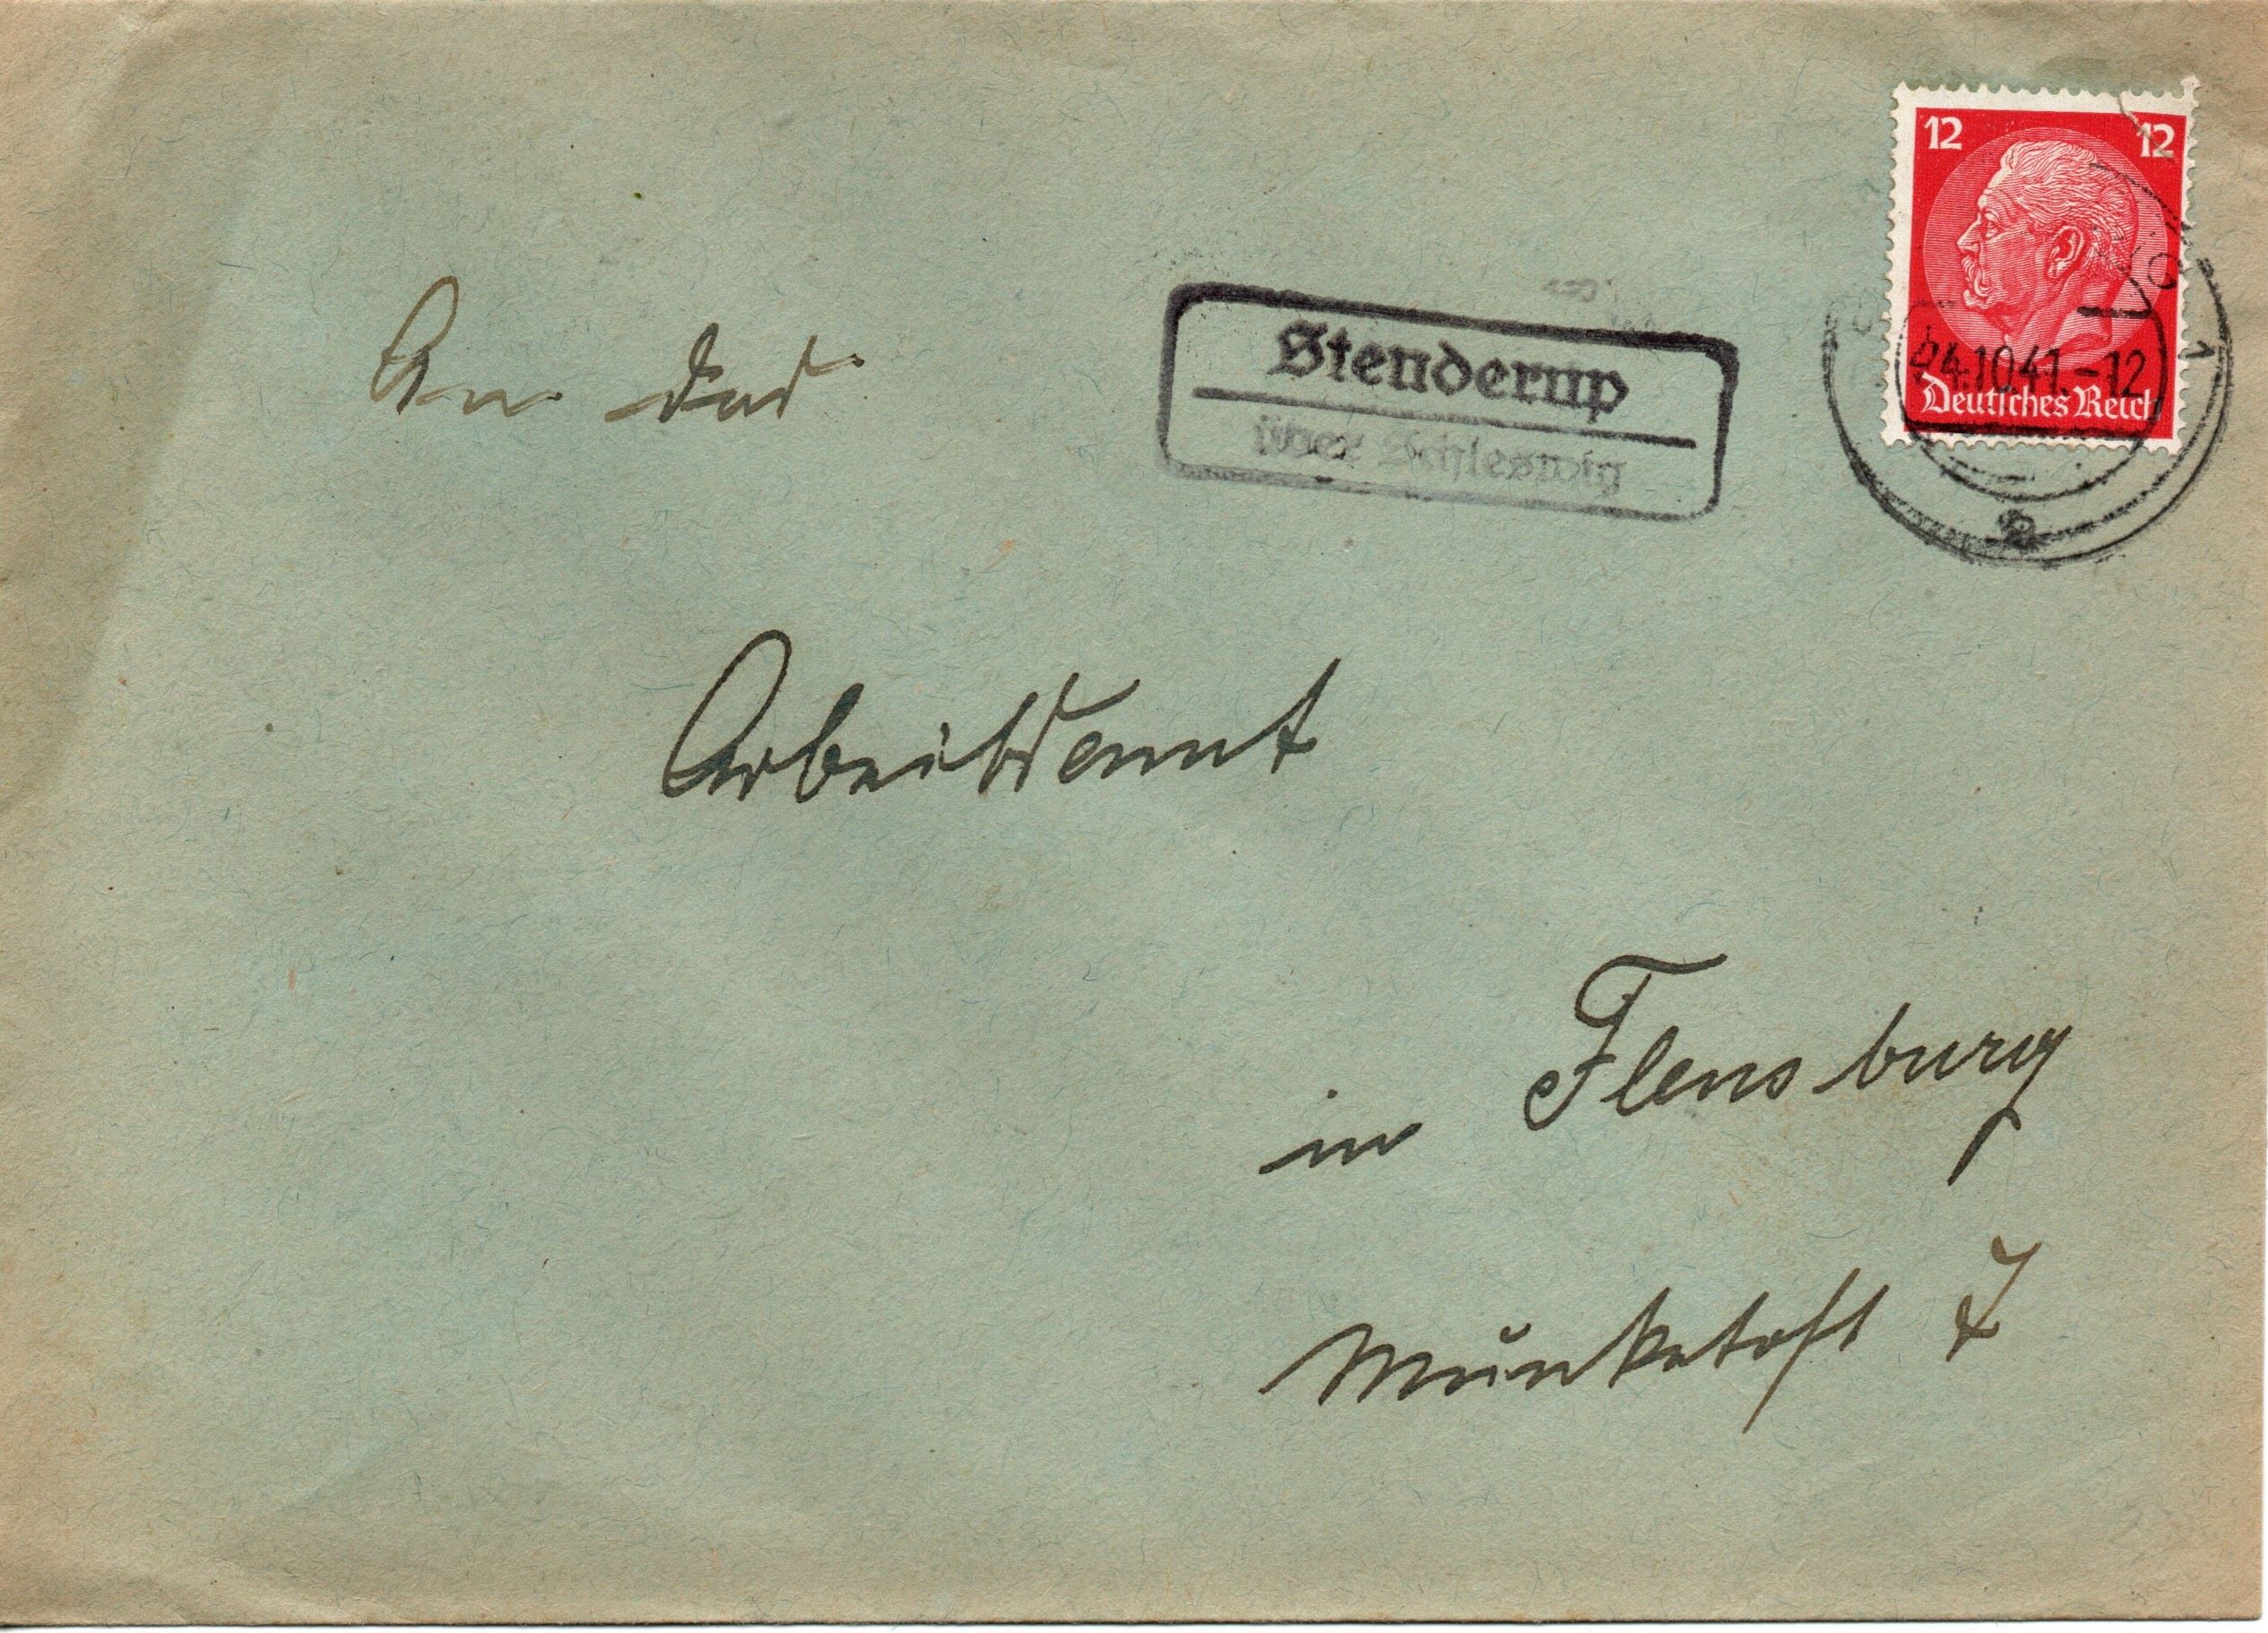 12 12
Deutsches Reich
24.10.41.-12
1
a
Stenderup
über Schleswig
An das
Arbeitsamt
in Flensburg
Munketoft 7